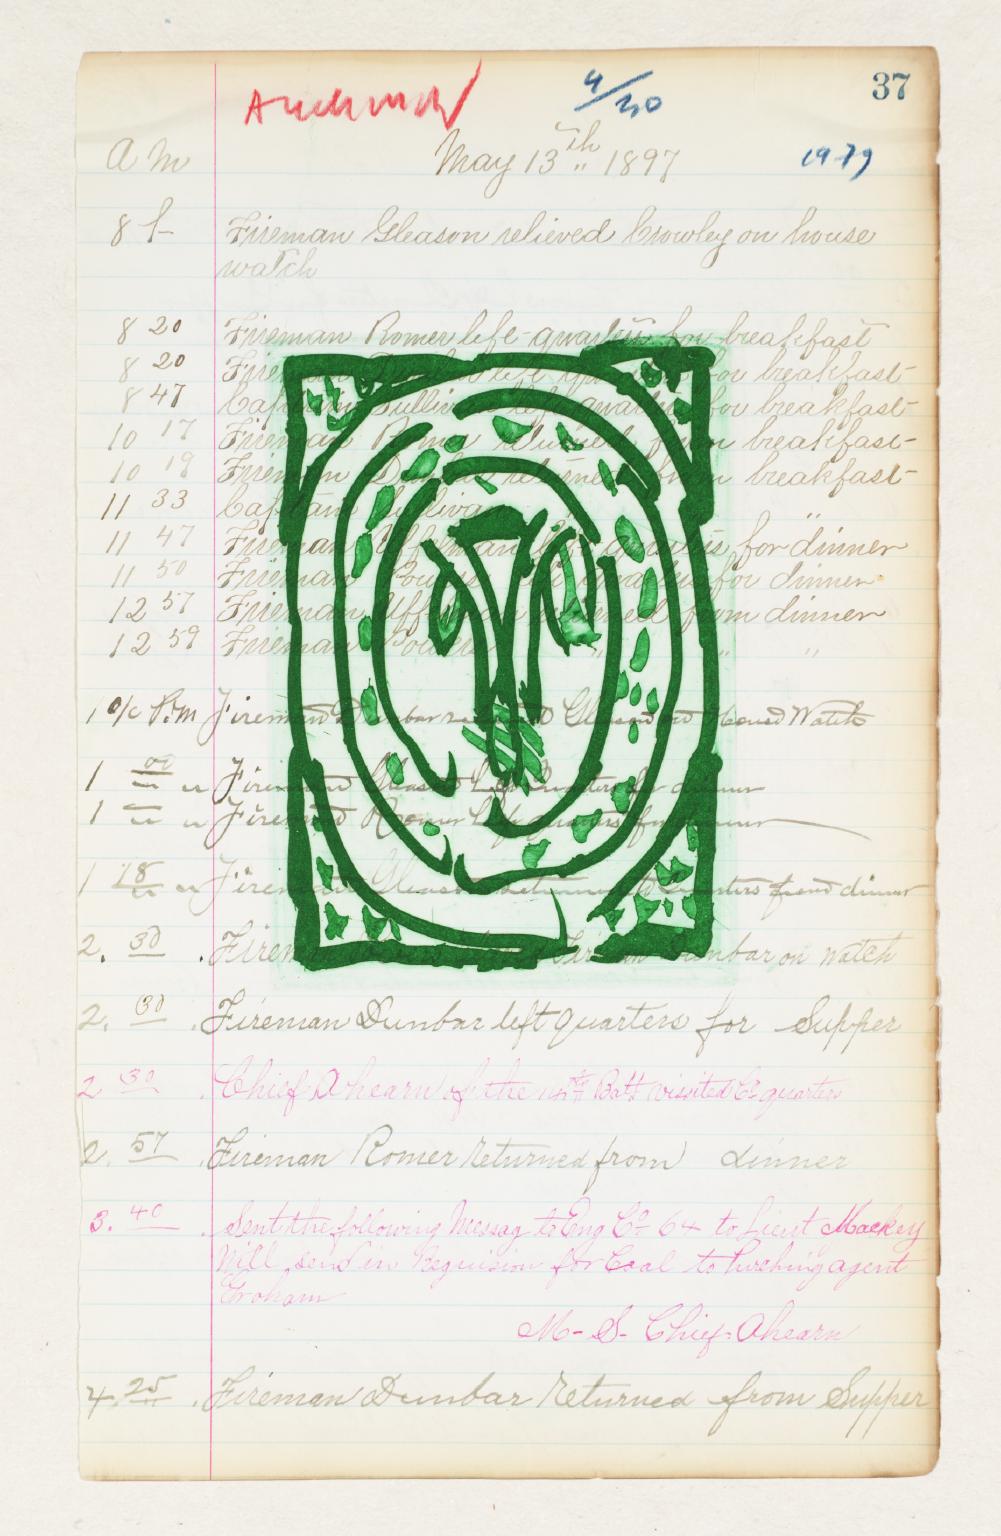 4/20
37
A M May 13th 1897 1979
8 Fireman Gleason relieved Crowley on house
watch
8 20 Fireman Romer left quarters for breakfast
8 20 Fireman left for breakfast
8 47 Captain Sullivan left quarters for breakfast
10 17 Fireman Romer returned from breakfast
10 19 Fireman returned from breakfast
11 33 Captain Sullivan "
11 47 Fireman left quarters for dinner
11 50 Fireman quarters for dinner
12 57 Fireman returned from dinner
12 59 Fireman " " "
1 o/c P.M Fireman Dunbar relieved Gleason on House Watch
1 00 Fireman Gleason Left Quarters for dinner
1 " " Fireman Romer Left quarters for dinner
1 18 " Fireman Gleason returned to quarters from dinner
2. 30 . Fireman Dunbar on watch
2. 30 . Fireman Dunbar left quarters for Supper
2 30 . Chief Ahearn of the Batt visited Co quarters
2. 57 . Fireman Romer returned from dinner
3. 40 . Sent the following Messag to Eng Co 64 to Lieut Mackey
Will send in Requision for Coal to agent
Groham
M- S- Chief- Ahearn
4. 25 . Fireman Dunbar returned from Supper